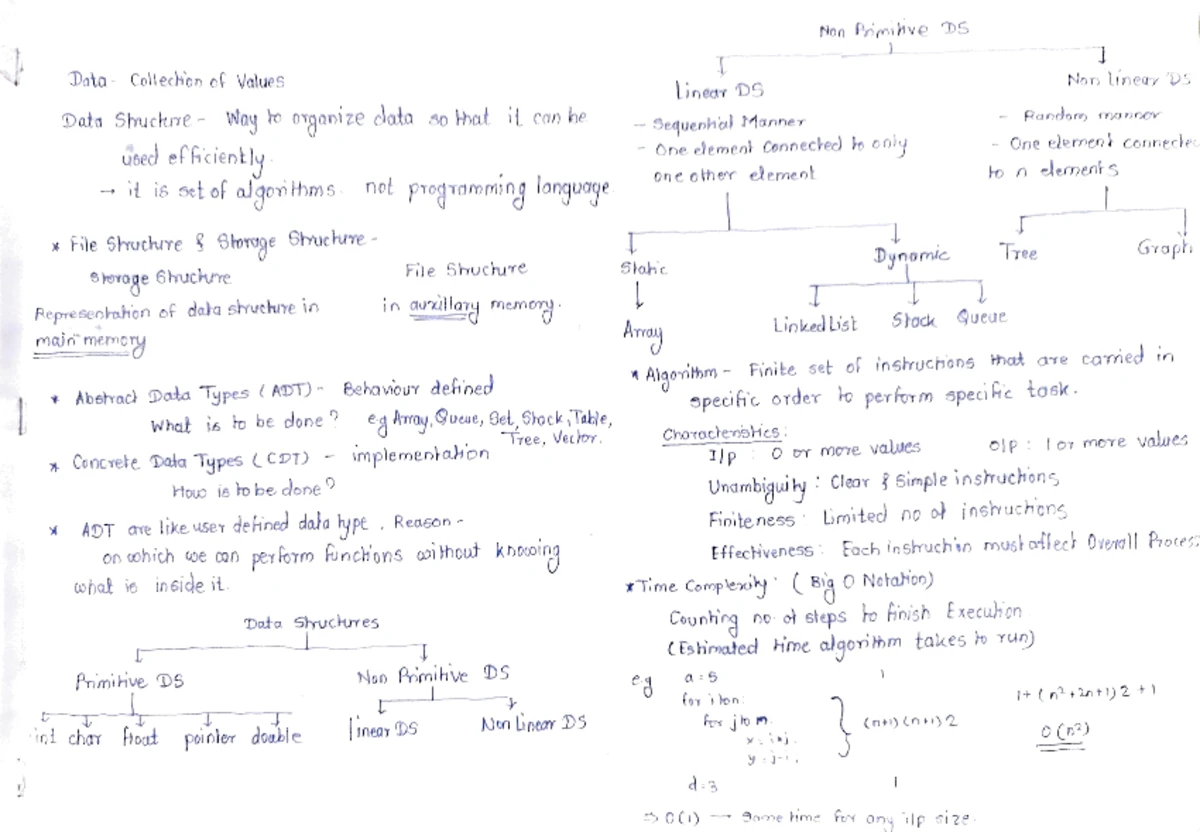 Data - Collection of Values
Data Structure - Way to organize data so that it can be
used efficiently.
→ it is set of algorithms. not programming language
* File Structure & Storage Structure -
Storage Structure
Representation of data structure in
main memory
File Structure
in auxillary memory.
* Abstract Data Types (ADT) - Behaviour defined
What is to be done? eg Array, Queue, Set, Stack, Table,
Tree, Vector.
* Concrete Data Types (CDT) - implementation
How is to be done?
* ADT are like user defined data type. Reason -
on which we can perform functions without knowing
what is inside it.
Data Structures
Primitive DS Non Primitive DS
int char float pointer double linear DS Non Linear DS
Non Primitive DS
Linear DS
- Sequential Manner
- One element Connected to only
one other element
Non linear DS
- Random manner
- One element connected
to n elements
Static Dynamic Tree Graph
Array Linked List Stack Queue
* Algorithm - Finite set of instructions that are carried in
specific order to perform specific task.
Characteristics:
I/p : 0 or more values o/p : 1 or more values
Unambiguity : Clear & Simple instructions
Finiteness : Limited no of instructions
Effectiveness : Each instruction must affect Overall Process
* Time Complexity : (Big O Notation)
Counting no. of steps to finish Execution
(Estimated time algorithm takes to run)
eg a = 5 1
for i to n:
for j to m.
(n+1)(n+1)2
1+(n²+2n+1)2+1
O(n²)
d = 3 1
⇒ O(1) — Same time for any i/p size.